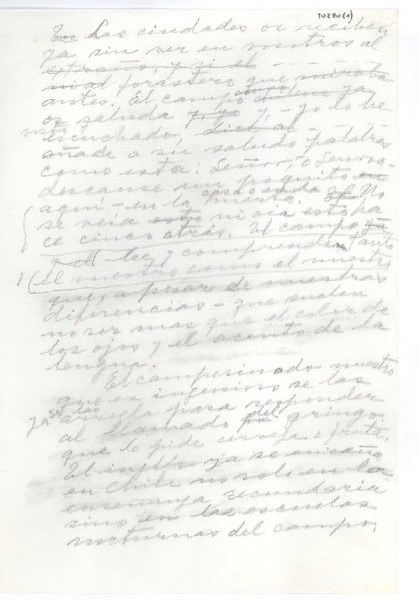 10270(a)
Las ciudades os reciben
ya sin ver en vosotros al
extraño, y si el
al forastero que miraba
antes. El campo ya
os saluda y, yo lo he
escuchado,
añade a su saludo palabras
como esta: Señor, o Señora
descanse un poquito
aquí en la huerta. No
se veía ni oía esto ha
ce cinco atrás. El campo
lee y comprende, tanto
el nuestro como el vuestro
que, a pesar de nuestras
diferencias – que suelen
no ser mas que el color de
los ojos y el acento de la
lengua.
El campesinado nuestro
que es ingenioso se las
arregla para responder
al llamado del gringo
que le pide cerveza o fruta.
El inglés ya se enseña
en Chile no solo en la
enseñanza secundaria
sino en las escuelas
nocturnas del campo.